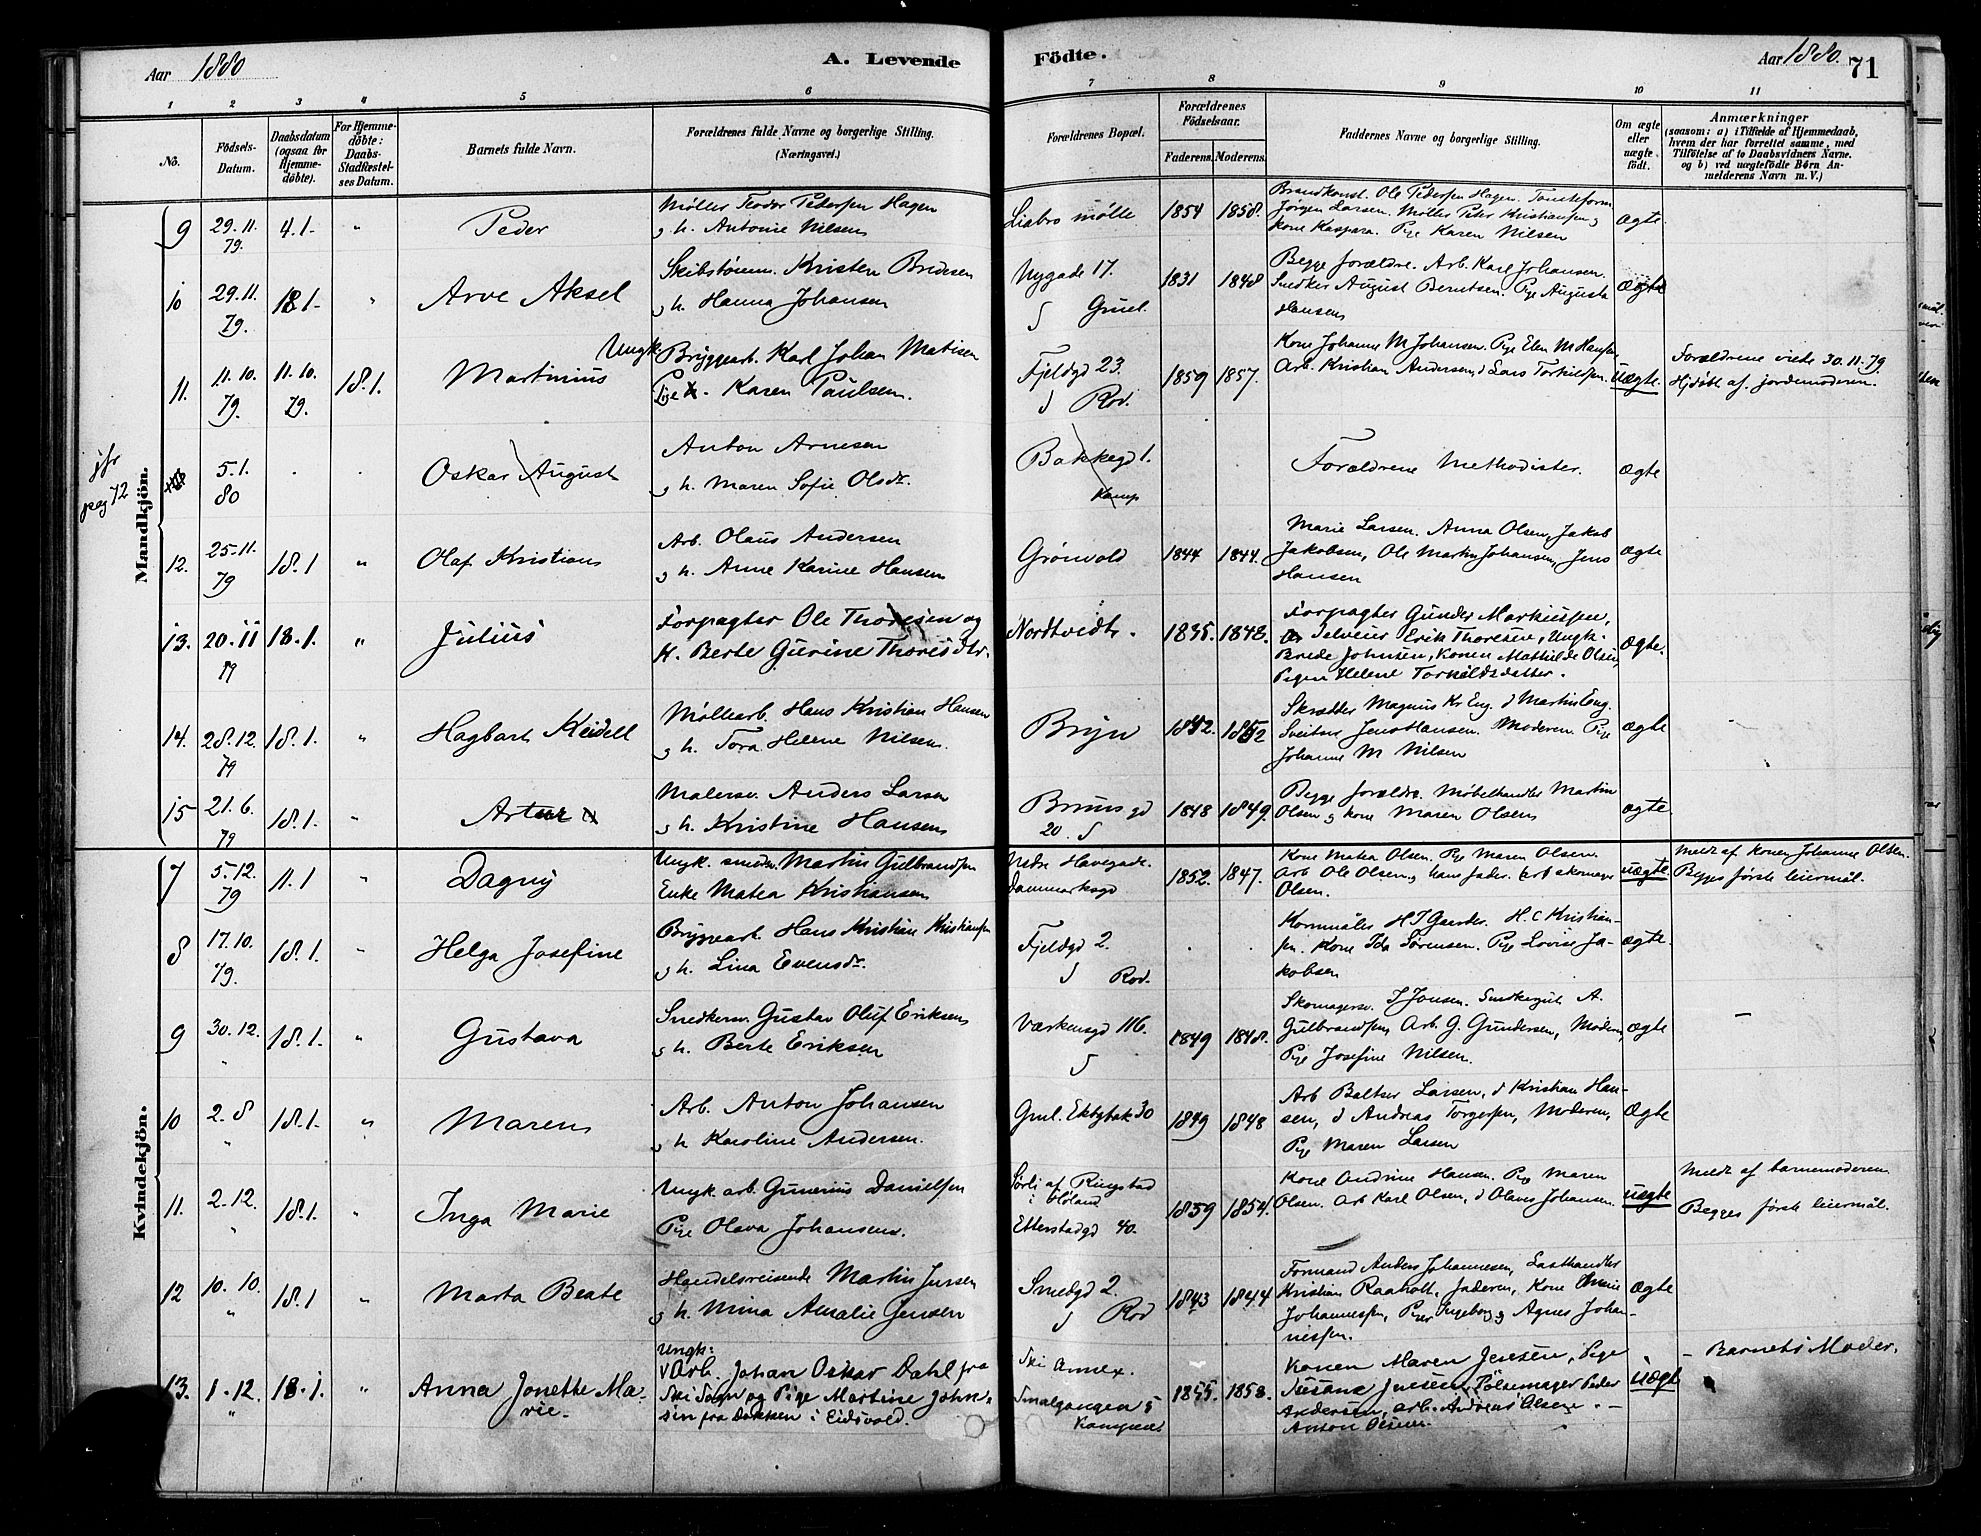 Aar 1880
A. Levende
Födte.
Aar 1880. 71
1 2 3 4 5 6 7 8 9 10 11
No.
Födsels-
Datum.
Daabsdatum
(ogsaa for
Hjemme-
döbte).
For Hjemme-
döbte:
Daabs-
Stadfæstel-
ses Datum.
Barnets fulde Navn.
Forældrenes fulde Navne og borgerlige Stilling.
(Næringsvei.)
Forældrenes Bopæl.
Forældrenes
Födselsaar.
Faderens. Moderens.
Faddernes Navne og borgerlige Stilling.
Om ægte
eller
uægte
födt.
Anmærkninger
(saasom: a) i Tilfælde af Hjemmedaab,
hvem der har forrettet samme, med
Tilföielse af to Daabsvidners Navne.
og b) ved uægtefödte Börn An-
melderens Navn m. V.)
Mandkjön.
9 29.11. 79. 4.1- " Peder
Møller Teodor Pedersen Hagen
og h. Antonie Nilsen
Liabro mølle 1854 1858.
Brandkonst. Ole Pedersen Hagen.
Jørgen Larsen. Møller Peter Kristiansen og
kone Kaspara. Pige Karen Nilsen
ægte
10 29.11. 79. 18.1- " Arve Aksel
Skibstømm. Kristen Bredesen
og h. Hanna Johansen
Nygade 17. 1831 1848
Begge forældre. Arb. Karl Johansen.
Snedker August Berntsen. Pige Augusta
Hansen
ægte
11. 11.10. 79. 11.10. 79. 18.1. Martinius
Ungk. Bryggearb. Karl Johan Matisen
Pige Karen Paulsen.
Fjeldgd 23. 1859 1857.
Rod.
Kone Johanne M Johansen. Pige Elen M Hansen
Arb. Kristian Andersen, d Lars Torkilsen.
Uægte.
Forældrene viede 30.11.79
Hjdøbt af jordemoderen.
jfr
pag 72
5.1. 80 Oskar August
Anton Arnesen
og h. Maren Sofie Olsdr.
Bakkegd 1.
Kamp
Forældrene Methodister.
ægte
12. 25.11. 79 18.1 " Olaf Kristian
Arb. Olaus Andersen
og h. Anne Karine Hansen
Grönvold 1844 1844.
Marie Larsen. Anna Olsen, Jakob
Jakobsen, Ole Martin Johansen, Jens
Hansen
ægte
13. 20.11 79 18.1. " Julius
Forpagter Ole Thoresen og
H. Berte Gurine Thoresdtr.
Nordtvedt. 1835. 1843.
Forpagter Gunder Markussen,
Selveier Erik Thoresen, Ungk.
Brede Johnsen, Konen Mathilde Olsen,
Pigen Helene Torkildsdatter.
ægte.
14. 28.12. 79 18.1. " Hagbart Keidell
Møllearb. Hans Kristian Hansen
og h. Tora Helene Nilsen.
Bryn 1842. 1852
Skrædder Magnus Kr Eng. d Martin Eng.
Sveitser Jens Hansen. Moderen. Pige
Johanne M Nilsen
ægte
15 21.6. 79 18.1. " Artur
Malersv. Anders Larsen
og h. Kristine Hansen
Bruns gd 1848 1849.
20.
Begge forældre. Møbelhandler Martin
Olsen og kone Maren Olsen
ægte.
Kvindekjön.
7 5.12. 79 11.1 " Dagny
Ungk. smedm. Martin Gulbrandsen
Enke Matea Kristiansen
Nedre Havegade. 1852. 1847.
Danmarksgd
Kone Matea Olsen. Pige Maren Olsen
Arb Ole Olsen og hans fader. Arb skomager
Olsen.
uægte
Meldt af konen Johanne Olsen.
Begges første leiermål.
8 17.10. 79. 18.1. " Helga Josefine
Bryggearb. Hans Kristian Kristiansen
og h. Lina Evensdr.
Fjeldgd 2. . .
Rod.
Kornmåler H J Garder. H. C Kristian-
sen. Kone Ida Sørensen. Pige Lovise Ja-
kobsen
ægte.
9 30.12. " 18.1. " Gustava
Snedkersv. Gustav Oluf Eriksen
og h. Berte Eriksen
Værkensgd 116. 1849 1848.
Skomagersv. J Jonsen. Snedkergut A.
Gulbrandsen, Arb. G. Gundersen, Moderen,
Pige Josefine Nilsen.
ægte
10 2.8 " 18.1. " Maren
Arb. Anton Johansen
og h Karoline Andersen.
Gml. Ekebybak 30 1849 1848
Arb Baltser Larsen, d Kristian Han-
sen, d Andreas Torgersen, Moderen,
Pige Maren Larsen
Ægte
11. 2.12. " 18.1. " Inga Marie
Ungk arb. Gunerius Danielsen
Pige Olava Johansen.
Sørli af Ringstad 1859 1854.
i Høland
Etterstadgd 40.
Kone Andrine Hansen. Pige Maren
Olsen. Arb Karl Olsen, d Olaves Johansen.
uægte
Meldt af barnemoderen
Begges første leiermål.
12 10.10. " 18.1 " Marta Beate
Handelsreisende Martin Jensen
og h. Mina Amalie Jensen
Smedgd 2. 1843 1844
Rod
Formand Anders Johannesen, Lasthandler
Kristian Raaholt, Faderen, Kone
Johannessen, Piger Ingeborg og Agnes Johan-
nessen.
ægte
13. 1.12. " 18.1. " Anna Jonette Ma-
rie.
Ungk:
Arb. Johan Oskar Dahl fra
Ski Sogn og Pige Martine John-
sen fra Dokken i Eidsvold.
Ski Annex. 1855. 1858.
Smalgangen 5
Kampen
Konen Maren Jensen, Pige
Susane Jensen, Pølsemager Peder
Andersen, arb. Andreas Olsen.
Anton Olsen.
Uægt
Barnets Moder.